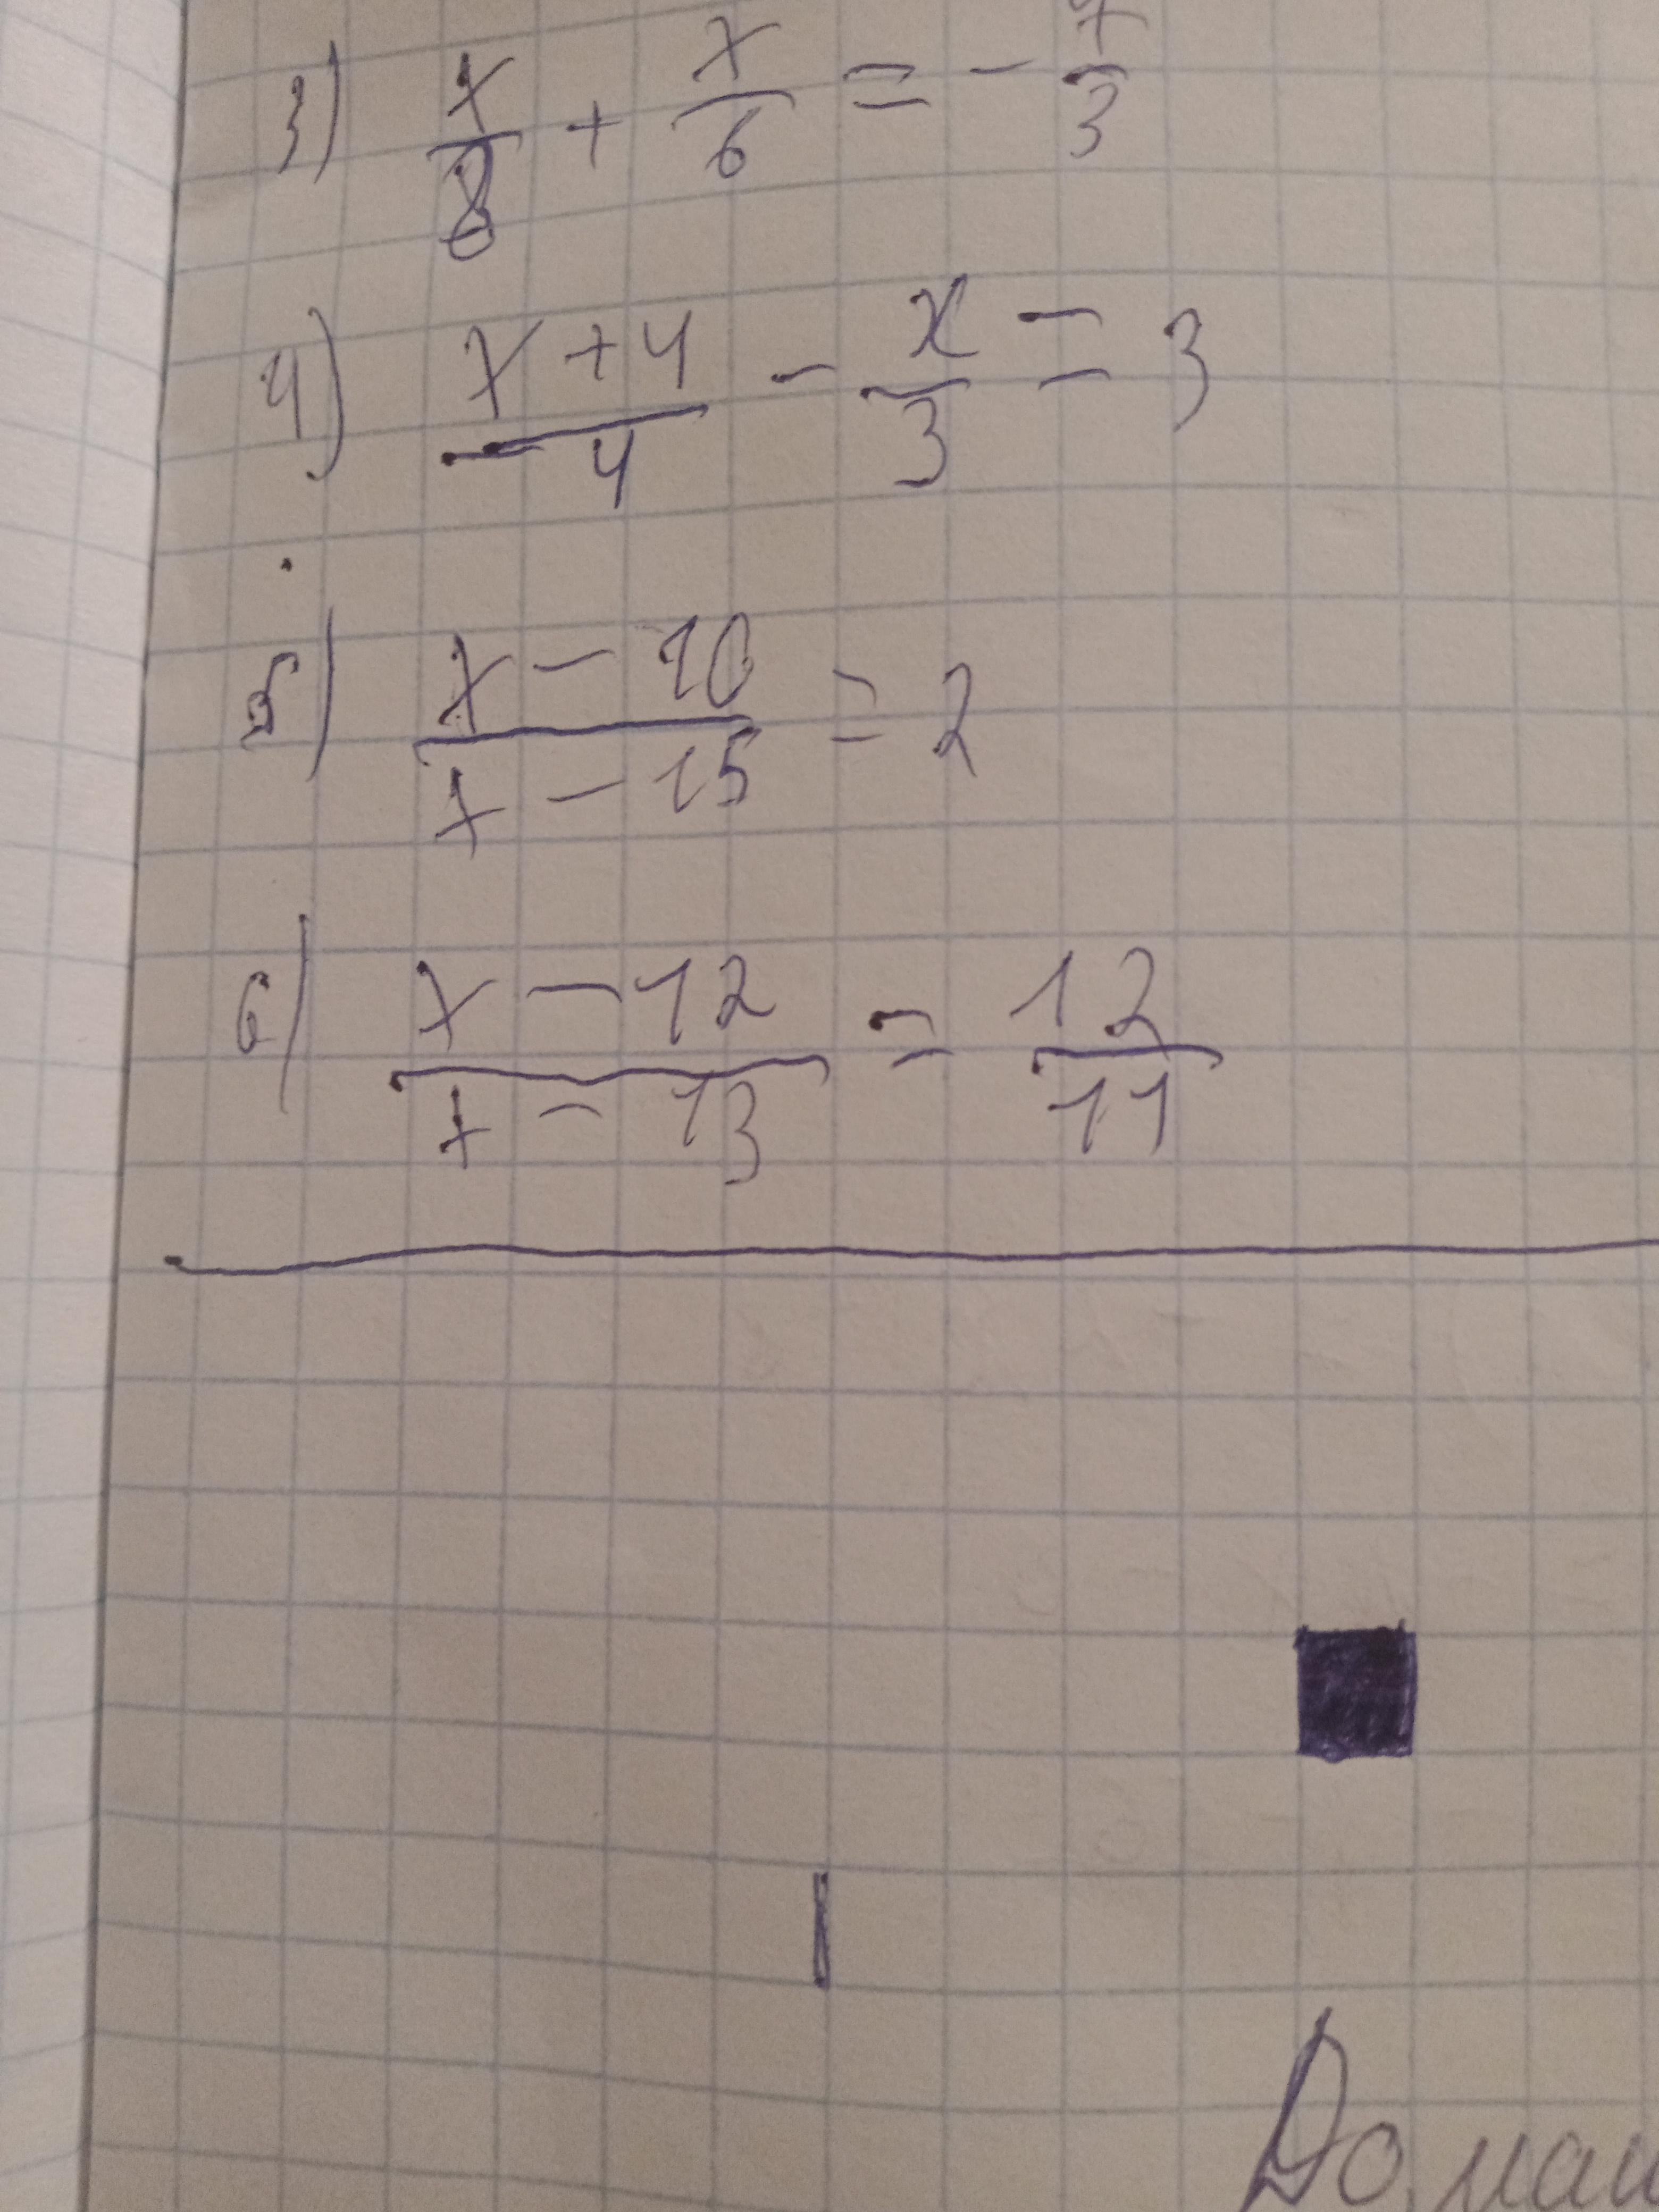 3) x/8 + x/6 = - 7/3
4) (x + 4)/4 - x/3 = 3
5) (x - 10)/(x - 15) = 2
6) (x - 12)/(x - 13) = 12/11